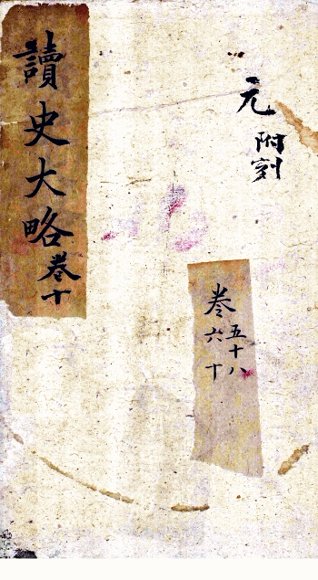 讀史大略卷十
元
附刻
卷
五十八
六十